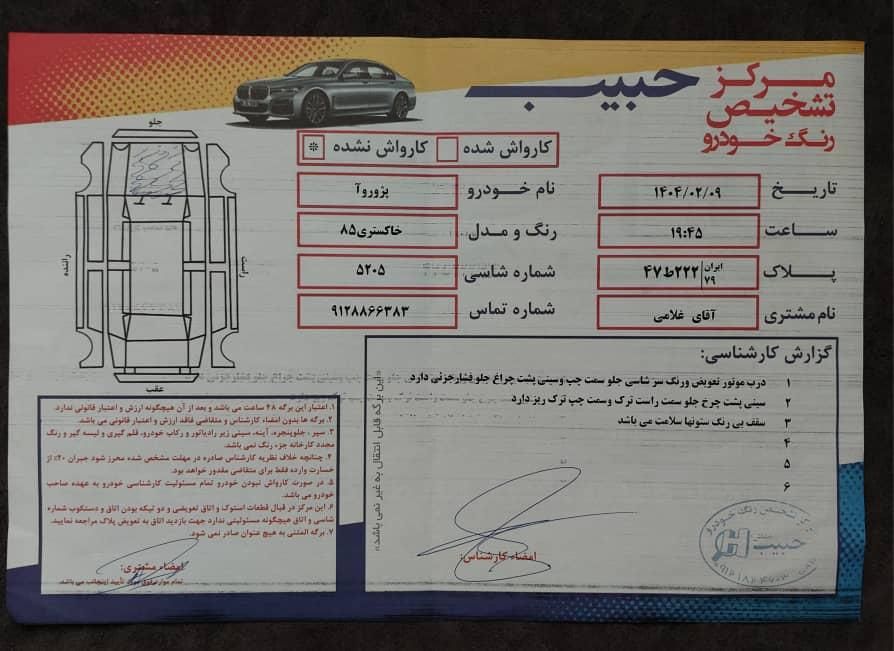 مرکز
تشخیص
رنگ خودرو
حبیب
کارواش شده
کارواش نشده *
تاریخ ۱۴۰۴/۰۲/۰۹
نام خودرو پژوروآ
ساعت ۱۹:۴۵
رنگ و مدل خاکستری۸۵
پلاک ایران ۷۹ ۲۲۲ط۴۷
شماره شاسی ۵۲۰۵
نام مشتری آقای غلامی
شماره تماس ۹۱۲۸۸۶۶۳۸۳
جلو
راننده
راست
عقب
گزارش کارشناسی:
۱ درب موتور تعویض ورنگ سر شاسی جلو سمت چپ وسینی پشت چراغ جلو فشارجزئی دارد
۲ سینی پشت چرخ جلو سمت راست ترک وسمت چپ ترک ریز دارد
۳ سقف بی رنگ ستونها سلامت می باشد
۴
۵
۶
امضاء کارشناس:
«این برگه قابل انتقال به غیر نمی باشد»
۱. اعتبار این برگه ۴۸ ساعت می باشد و بعد از آن هیچگونه ارزش و اعتبار قانونی ندارد.
۲. برگه ها بدون امضاء کارشناس و متقاضی فاقد ارزش و اعتبار قانونی می باشد.
۳. سپر ، جلوپنجره، آینه، سینی زیر رادیاتور و رکاب خودرو، قلم گیری و لیسه گیر و رنگ
مجدد کارخانه جزء رنگ نمی باشد.
۴. چنانچه خلاف نظریه کارشناس صادره در مهلت مشخص شده محرز شود جبران ۲۰٪ از
خسارت وارده فقط برای متقاضی مقدور خواهد بود.
۵. در صورت کارواش نبودن خودرو تمام مسئولیت کارشناسی خودرو به عهده صاحب
خودرو می باشد.
۶. این مرکز در قبال قطعات استوک و اتاق تعویضی و دو تیکه بودن اتاق و دستکوب شماره
شاسی و اتاق هیچگونه مسئولیتی ندارد جهت بازدید اتاق به تعویض پلاک مراجعه نمایید.
۷. برگه المثنی به هیچ عنوان صادر نمی شود.
امضاء مشتری:
تمام موارد فوق مورد تأیید اینجانب می باشد.
مرکز تشخیص رنگ خودرو
حبیب